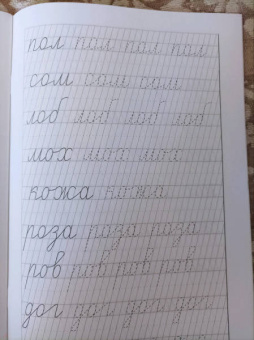 пол пол пол пол
сом сом сом
лоб лоб лоб лоб
мох мох мох
кожа кожа
роза роза роза
ров ров ров ров
дог дог дог дог